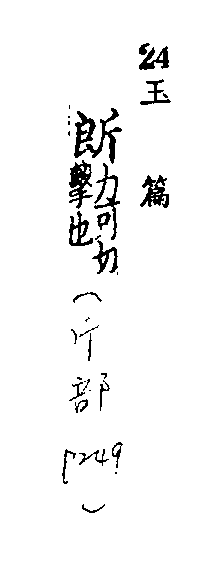 24玉篇
力可切
擊也
(斤部 P249)